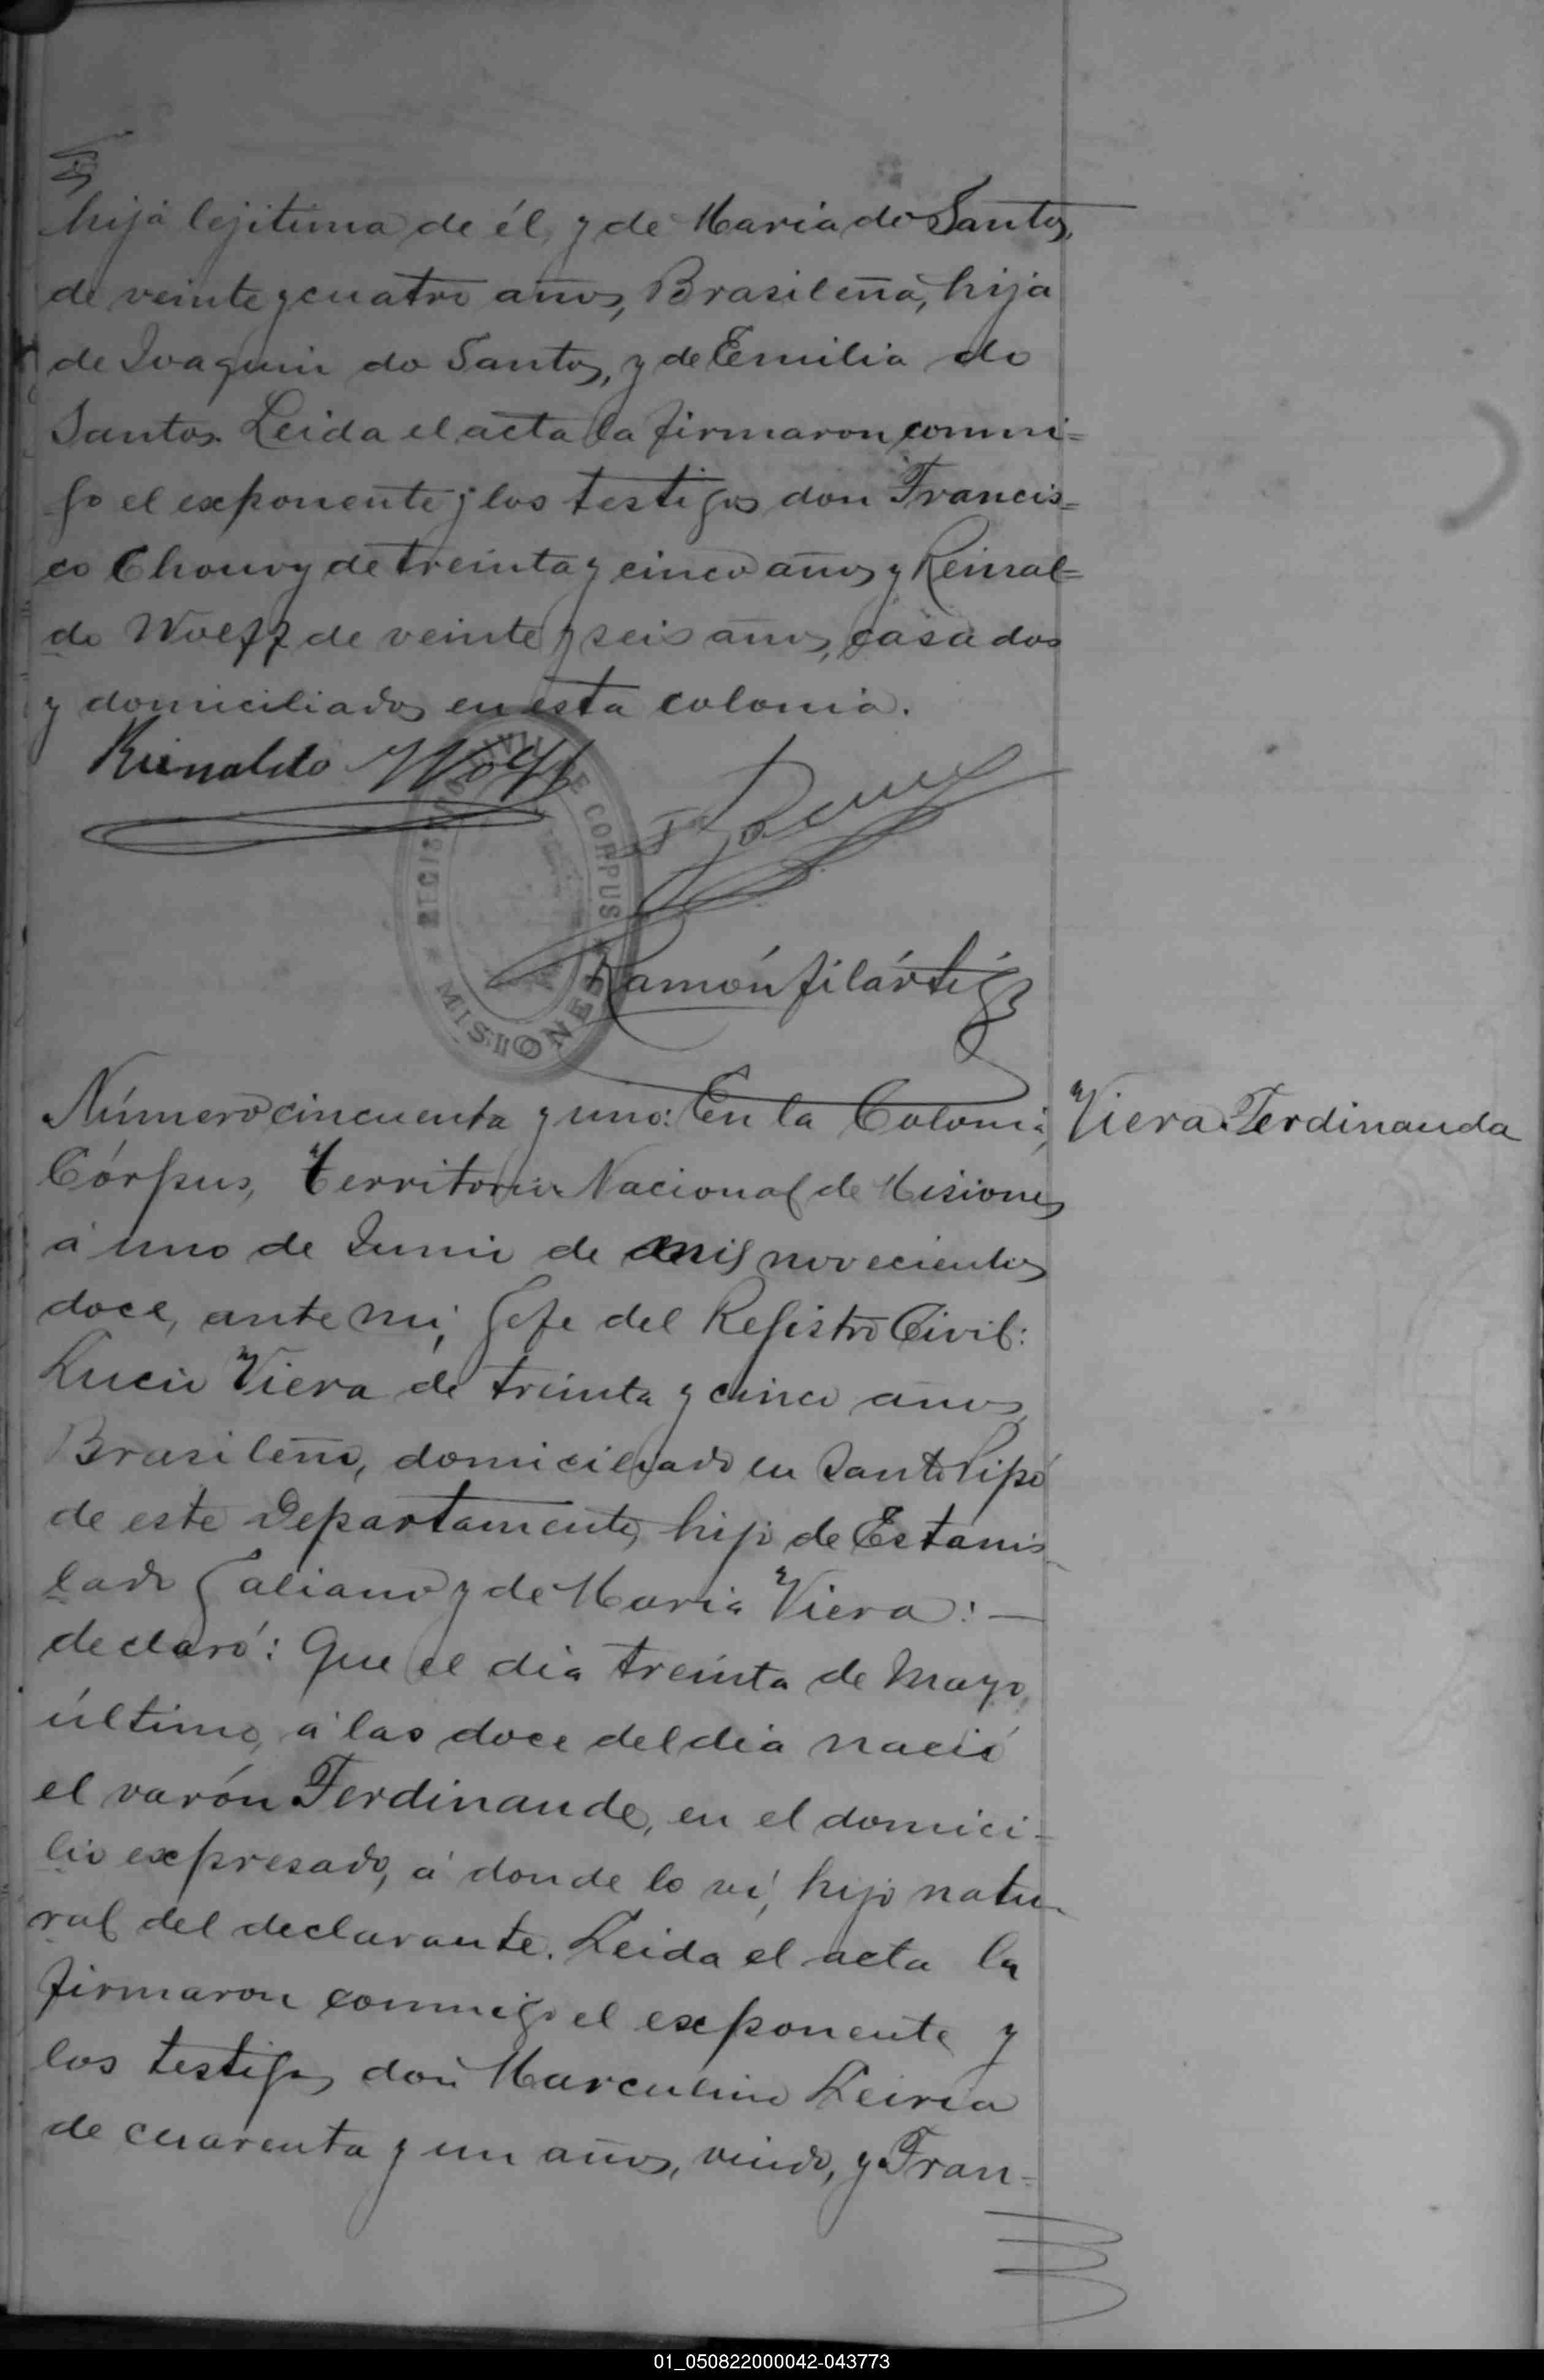 hija lejitima de él, y de Maria do Santos,
de veinte y cuatro años, Brasileña, hija
de Joaquin do Santos, y de Emilia do
Santos. Leida el acta la firmaron conmi=
go el exponente y los testigos don Francis=
co Chouvy de treinta y cinco años y Reinal=
do Wolff de veinte y seis años, casados
y domiciliados en esta colonia.
Reinaldo Wolff
REGISTRO CIVIL DE CORPUS
MISIONES
Ramón Filártiga
Número cincuenta y uno: En la Colonia Viera Ferdinanda
Córpus, Territorio Nacional de Misiones
á uno de Junio de mil novecientos
doce, ante mi, Gefe del Registro Civil:
Lucio Viera de treinta y cinco años,
Brasileño, domiciliado en Santo Pipó
de este Departamento, hijo de Estanis
lado Galiano y de Maria Viera: —
declaró: Que el dia treinta de Mayo,
último, á las doce del dia nació
el varón Ferdinande, en el domici=
lio expresado, á donde lo vi, hijo natu-
ral del declarante. Leida el acta la
firmaron conmigo el exponente y
los testigos don Marculino Leiria
de cuarenta y un años, viudo, y Fran=
01_050822000042-043773